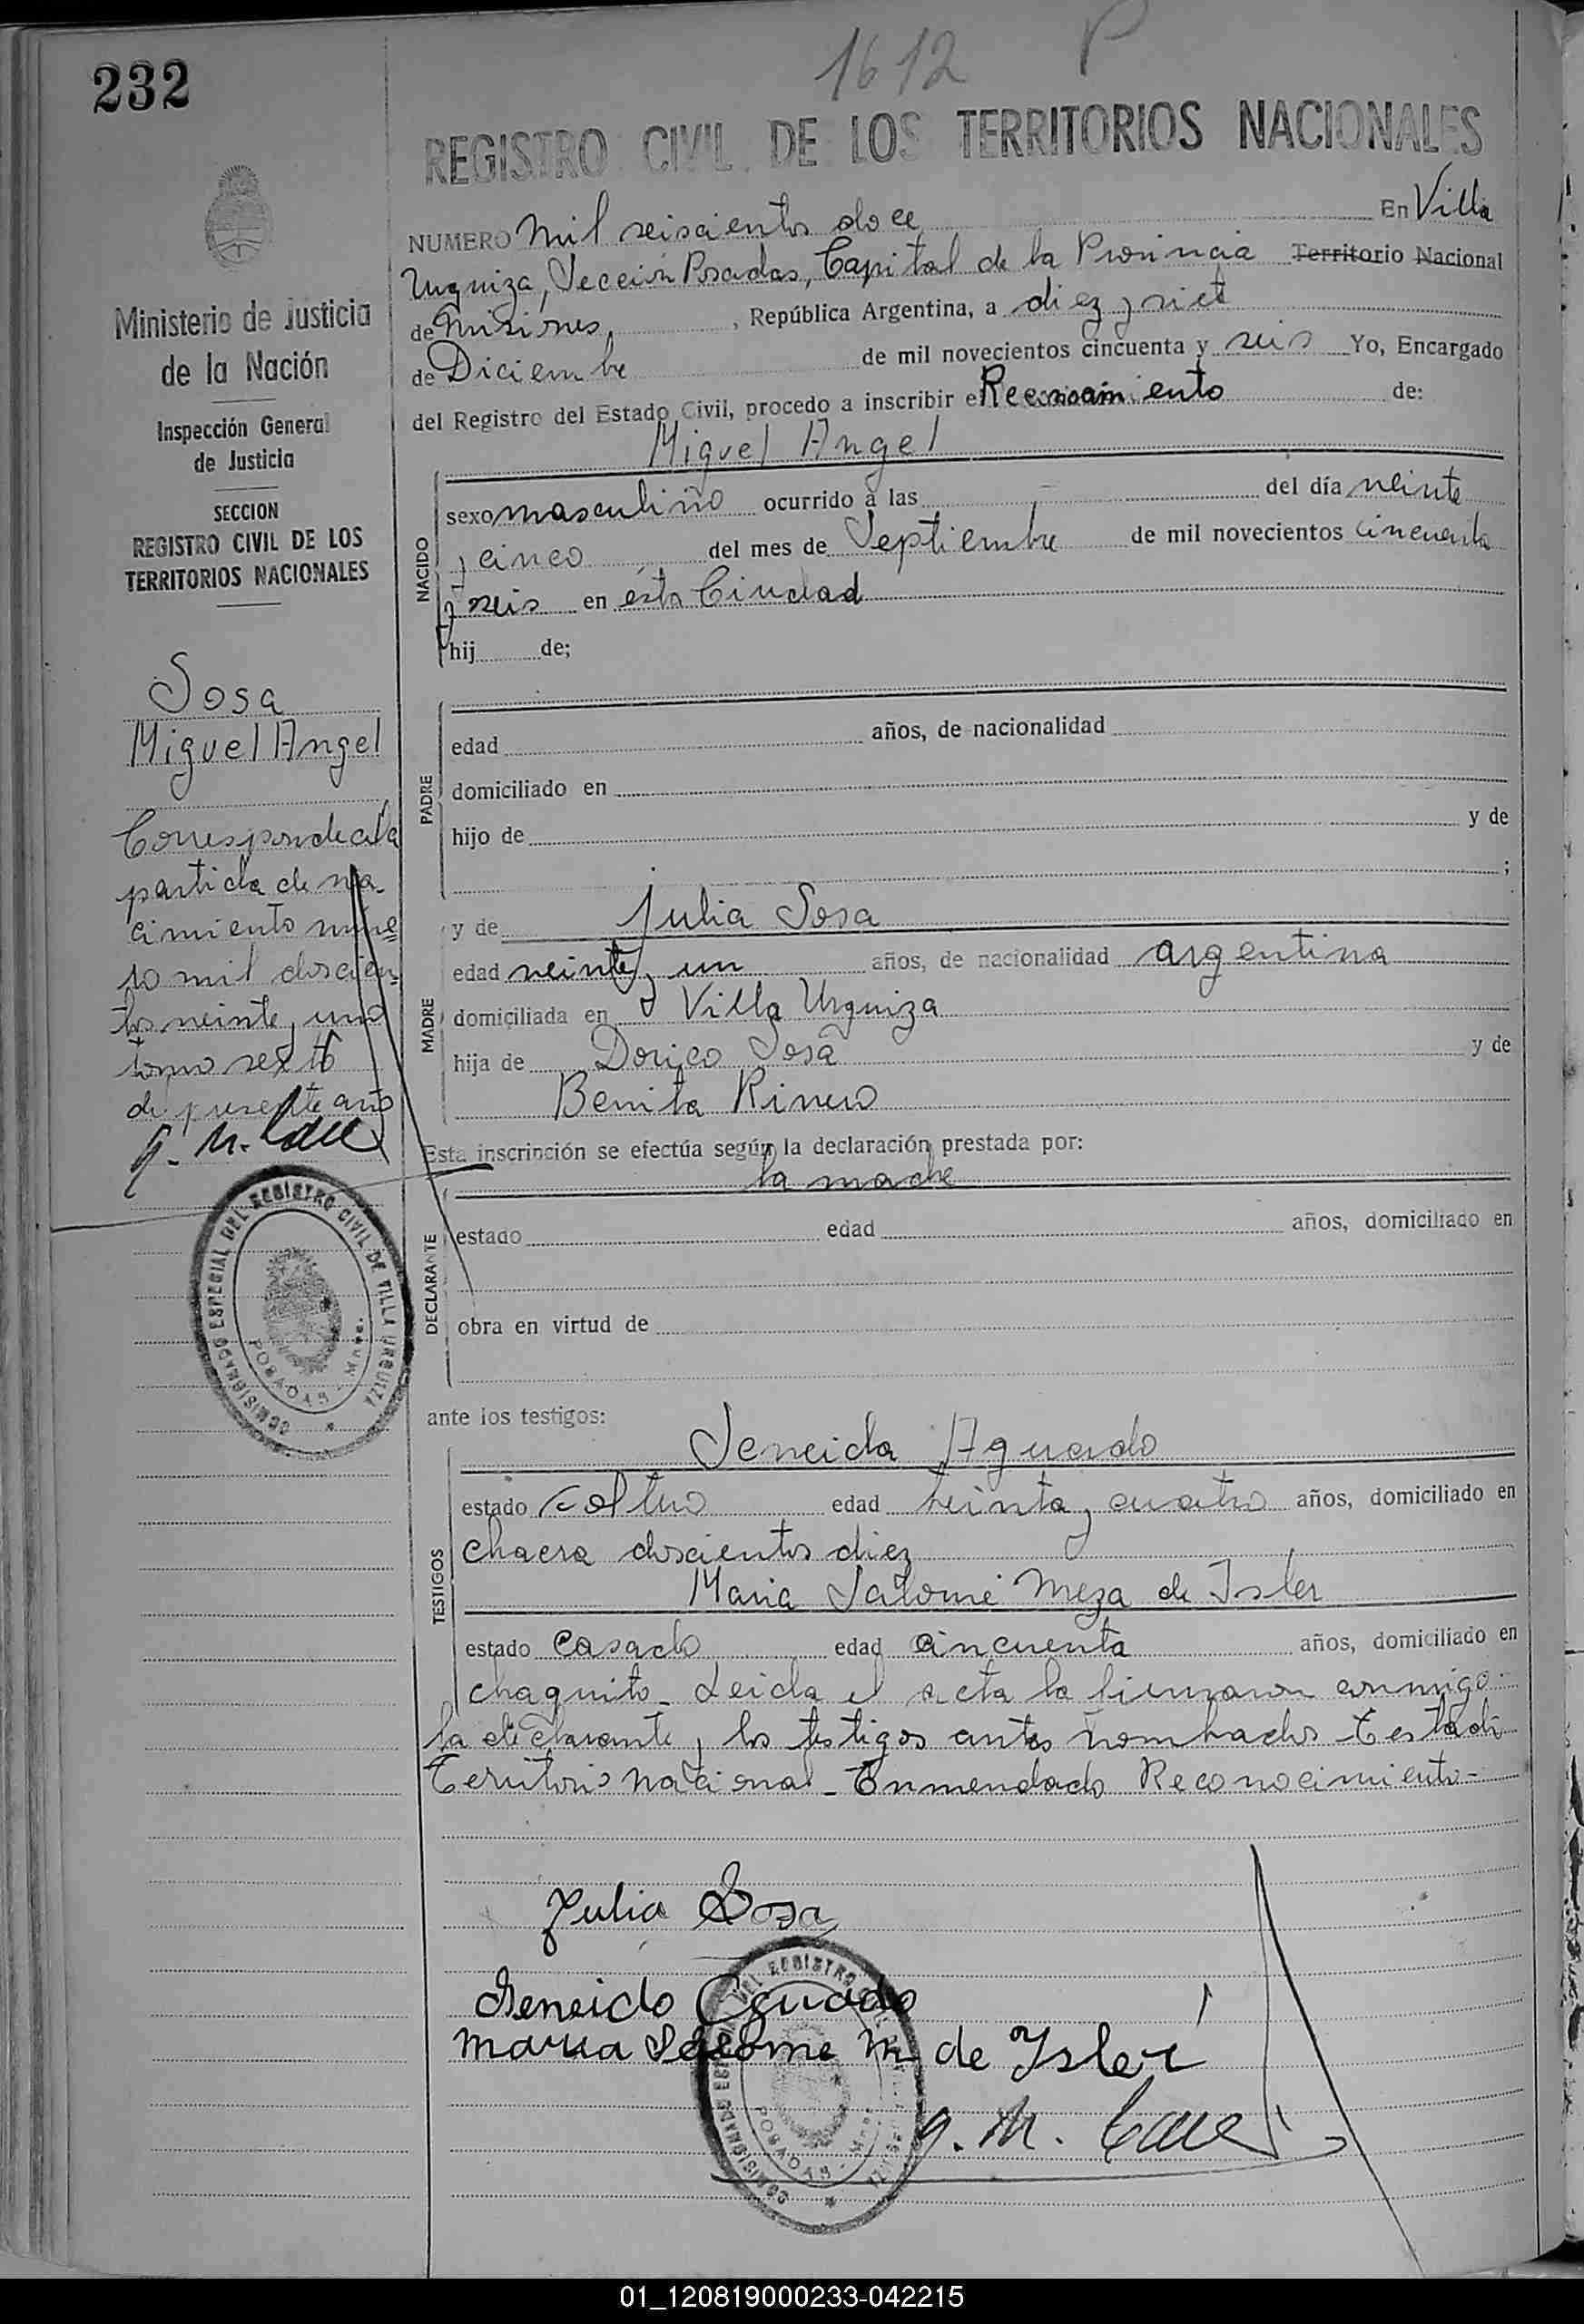 232
1612 P
REGISTRO CIVIL DE LOS TERRITORIOS NACIONALES
NUMERO Mil seiscientos doce En Villa
Urquiza, Sección Posadas, Capital de la Provincia Territorio Nacional
de Misiones, , República Argentina, a diez y siete
de Diciembre de mil novecientos cincuenta y seis Yo, Encargado
del Registro del Estado Civil, procedo a inscribir el de:
Miguel Angel
NACIDO
sexo masculino ocurrido a las - del día veinte
y cinco del mes de Septiembre de mil novecientos cincuenta
y seis en esta Ciudad
hij de;
PADRE
edad años, de nacionalidad
domiciliado en
hijo de y de
;
MADRE
y de Julia Sosa
edad veinte y un años, de nacionalidad argentina
domiciliada en Villa Urquiza
hija de Sosa y de
Benita
Esta inscripción se efectúa según la declaración prestada por:
la madre
DECLARANTE
estado edad años, domiciliado en
obra en virtud de
ante los testigos:
TESTIGOS
Seneida Aguado
estado soltero edad treinta y cuatro años, domiciliado en
chacra doscientos diez
Maria Salomé Meza de Isler
estado Casado edad cincuenta años, domiciliado en
chaquito - Leida el acta la firmaron conmigo
la declarante y los testigos antes nombrados - Testado
Territorio nacional - Enmendado Reconocimiento -
Julia Sosa
Seneido Aguado
Maria Salome M de Isler
Ministerio de Justicia
de la Nación
Inspección General
de Justicia
SECCION
REGISTRO CIVIL DE LOS
TERRITORIOS NACIONALES
Sosa
Miguel Angel
Corresponde a la
partida de na-
cimiento núme
ro mil doscien
tos veinte y uno
tomo sexto
del presente año
COMISIONADO ESPECIAL DEL REGISTRO CIVIL DE VILLA URQUIZA
POSADAS - Mnes.
01_120819000233-042215